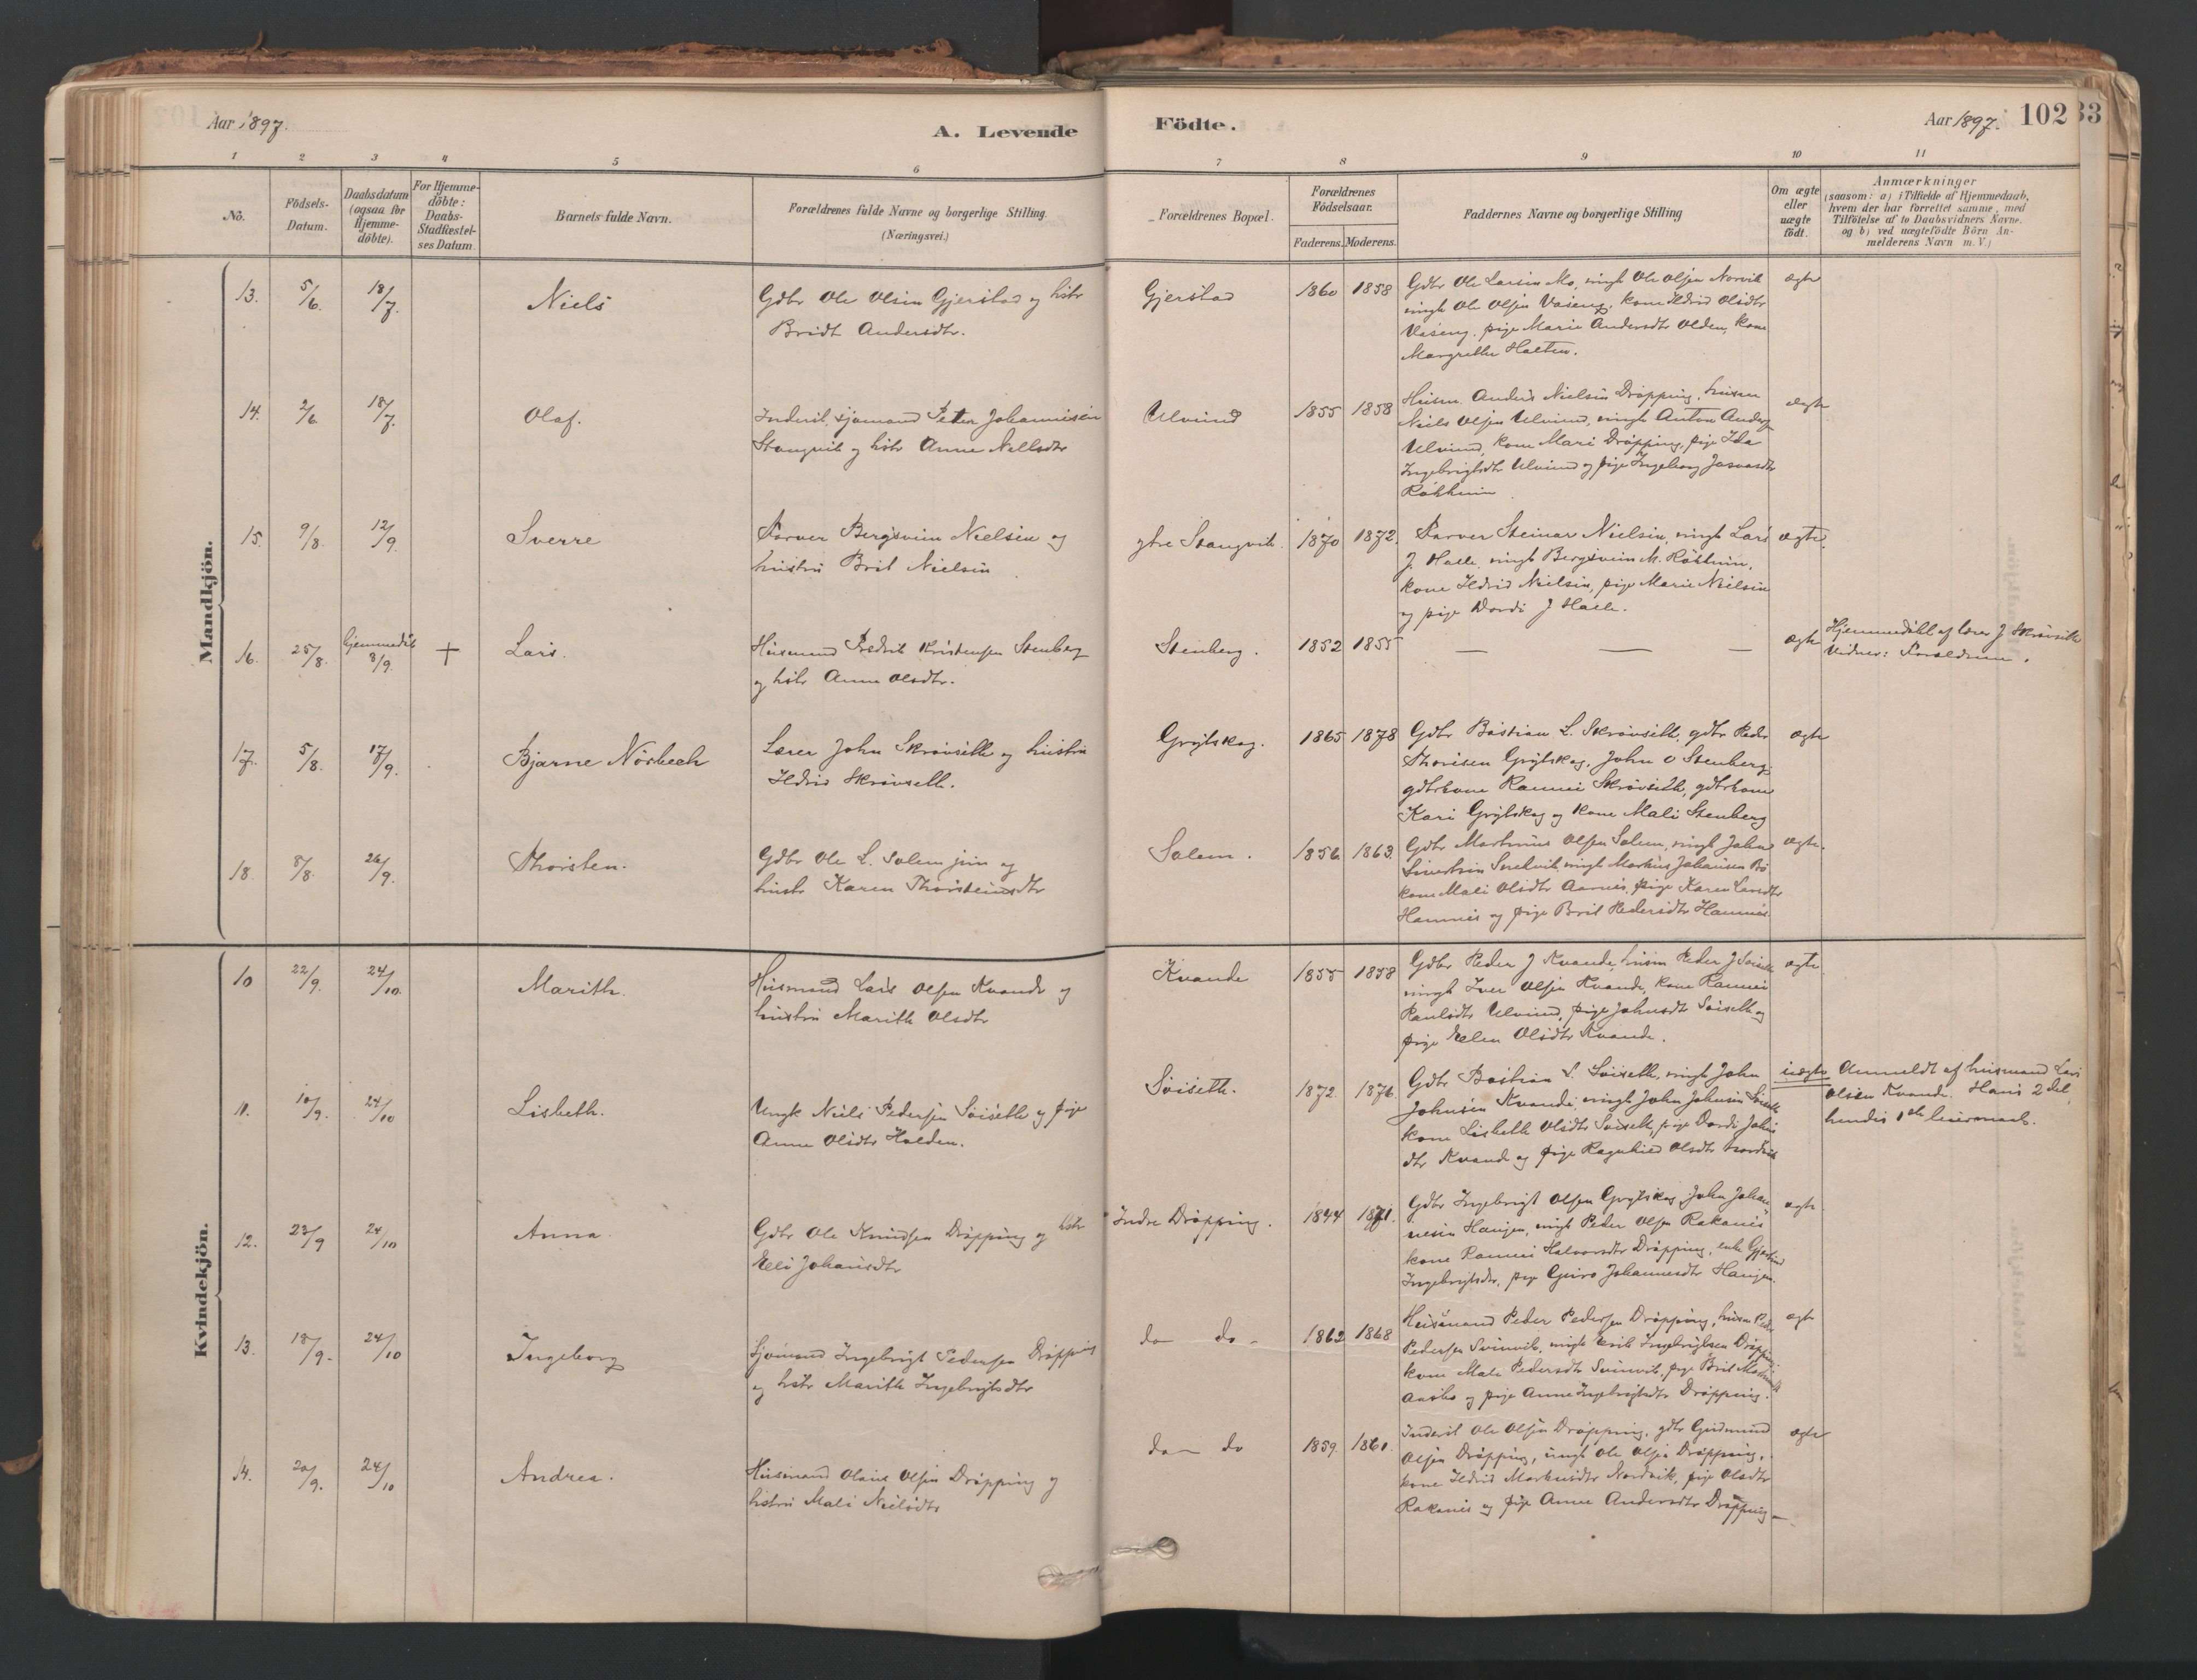 Aar 1897.
A. Levende
Födte.
Aar 1897.
102
33
1 2 3 4 5 6 7 8 9 10 11
No.
Födsels-
Datum.
Daabsdatum
(ogsaa for
Hjemme-
döbte).
For Hjemme-
döbte:
Daabs-
Stadfæstel-
ses Datum.
Barnets fulde Navn.
Forældrenes fulde Navne og borgerlige Stilling.
(Næringsvei.)
Forældrenes Bopæl.
Forældrenes
Födselsaar.
Faderens. Moderens.
Faddernes Navne og borgerlige Stilling
Om ægte
eller
uægte
födt.
Anmærkninger
(saasom: a) i Tilfælde af Hjemmedaab,
hvem der har forrettet samme, med
Tilföielse af to Daabsvidners Navne,
og b) ved uægtefödte Börn An-
melderens Navn m. V.)
Mandkjön.
13. 5/6. 18/7. Niels
Gdbr Ole Olsen Gjerstad og hstr
Bridt Andersdtr.
Gjerstad 1860 1858
Gdbr Ole Larsen Mo, ungk Ole Olsen Norvik
ungk Ole Olsen Vaseng, kone Ildrid Olsdtr
Vaseng, pige Marie Andersdtr Olden, kone
Margrethe Halten.
ægte
14. 2/6. 18/7. Olaf.
Inderst, sjømand Peter Johannesen
Stangvik og hstr Anne Nilsdtr
Ulvund 1855 1858
Husm. Anders Nielsen Drøpping, husm
Niels Olsen Ulvund, ungk Anton Anders
Ulvund, kone Mari Drøpping, pige Ida
Ingebrigtsdtr Ulvund og pige Ingeborg
Røkkum
ægte
15. 9/8. 12/9. Sverre
Farver Bergsvein Nielsen og
hustru Brit Nielsen
ytre Stangvik. 1870 1872.
Farver Steinar Nielsen, ungk Lars
J. Halle, ungk Bergsvein M. Røkkum,
kone Ildrid Nielsen, pige Marie Nielsen
og pige Dordi J Halle.
ægte.
16. 25/8. hjemmedøbt
8/9. + Lars.
Husmand Fredrik Kristensen Stenberg
og hstr Anne Olsdtr.
Stenberg. 1852 1855 — — —
ægte
Hjemmedøbt af lærer J Skrøvseth
Vidner: Forældrene.
17. 5/8. 17/9. Bjarne Nörbech
Lærer John Skrøvseth og hustru
Ildrid Skrøvseth.
Grytskog. 1865 1878
Gdbr Bastian L. Skrøvseth, gdbr Peder
Thoresen Grytskog, John O Stenberg,
gdbrkone Rannei Skrøvseth, gdbrkone
Kari Grytskog og kone Mali Stenberg
ægte
18. 8/8. 26/9. Thorsten.
Gdbr Ole L. Solem jun og
hustr Karen Thorsteinsdtr
Solem. 1856 1863.
Gdbr Martinus Olsen Solem, ungk John
Sivertsen, ungk Markus Johansen Bø
kone Mali Olsdtr Aarnes, pige Karen Larsdtr
Hamnes og pige Brit Pedersdtr Hamnes
ægte.
Kvindekjön.
10 22/9. 24/10. Marith.
Husmand Lars Olsen Kvande og
hustru Marith Olsdtr
Kvande 1855 1858
Gdbr Peder J Kvande, husm Peder J Søiseth
ungk Iver Olsen Kvande, kone Rannei
Paulsdtr Ulvund, pige Johnsdtr Søiseth og
pige Elen Olsdtr Kvande.
ægte
11. 10/9. 24/10 Lisbeth.
Ungk Niels Pedersen Søiseth og pige
Anne Olsdtr Halden.
Søiseth. 1872. 1876.
Gdbr Bastian L. Søiseth, ungk John
Johnsen Kvande, ungk John Johnsen Søiseth
kone Lisbeth Olsdtr Søiseth, pige Dordi Johns
dtr Kvande og pige Ragnhild Olsdtr Nordvik
uægte
Anmeldt af husmand Lars
Olsen Kvande. Hans 2det,
hendes 1ste leiermaal.
12. 23/9 24/10 Anna
Gdbr Ole Knudsen Drøpping og hstr
Eli Johansdtr
Indre Drøpping. 1844 1871.
Gdbr Ingebrigt Olsen Grytskog, John Johan-
nesen Haugen, ungk Peder Olsen Rakanes
kone Rannei Halvorsdtr Drøpping, enke Gjertrud
Ingebrigtsdtr, pige Guro Johannesdtr Haugen.
ægte
13. 18/9. 24/10 Ingeborg
Sjømand Ingebrigt Pedersen Drøpping
og hstr Marith Ingebrigtsdtr
do do 1862 1868
Husmand Peder Pedersen Drøpping, husm Peder
Pedersen Svinvik, ungk Erik Ingebrigtsen Drøpping
kone Mali Pedersdtr Svinvik, pige Brit
Aasbø og pige Anne Ingebrigtsdtr Drøpping.
ægte
14. 20/9. 24/10 Andrea.
Husmand Olaus Olsen Drøpping og
hstru Mali Nielsdtr
do do 1859. 1861.
Inderst Ole Olsen Drøpping, gdbr Gudmund
Olsen Drøpping, ungk Ole Olsen Drøpping,
kone Ildrid Markusdtr Nordvik, pige Olsdtr
Rakanes og pige Anne Andersdtr Drøpping—
ægte